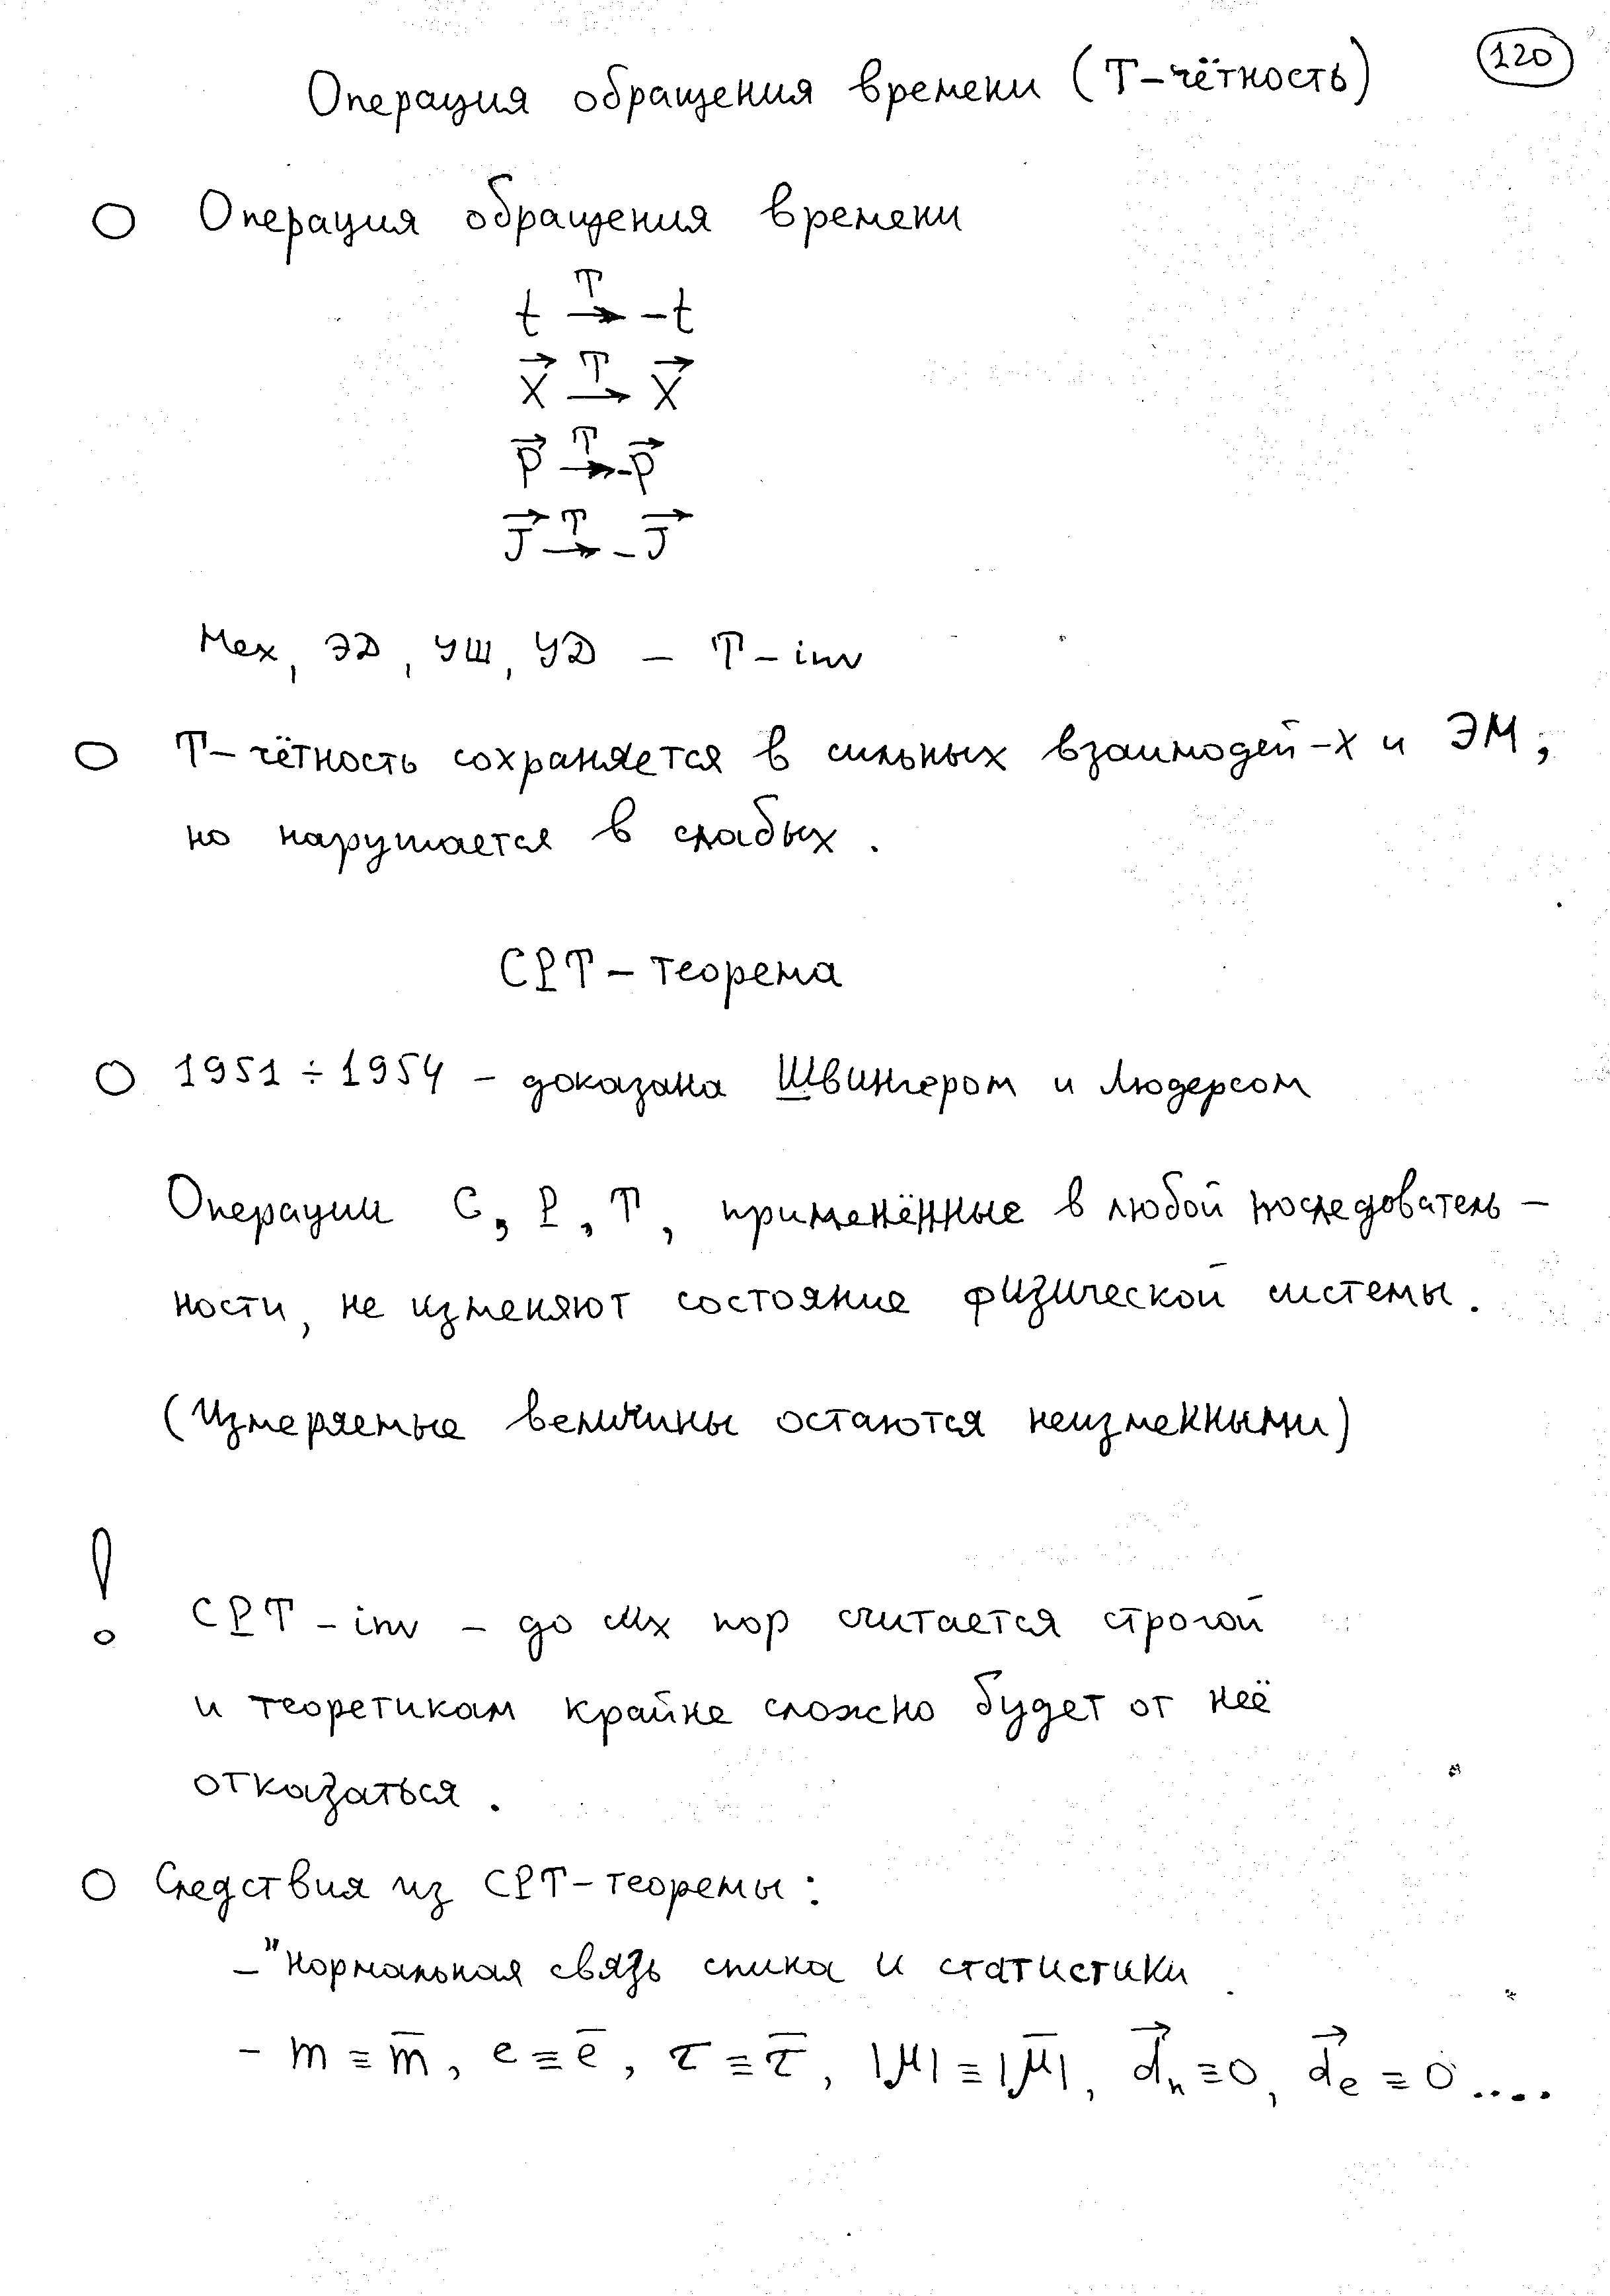 120
Операция обращения времени (T-чётность)
Операция обращения времени
t →ᵀ -t
x⃗ →ᵀ x⃗
p⃗ →ᵀ -p⃗
J⃗ →ᵀ -J⃗
Мех, ЭД, УШ, УД – T-inv
T-чётность сохраняется в сильных взаимодей-х и ЭМ;
но нарушается в слабых.
CPT-теорема
1951 ÷ 1954 – доказана Швингером и Людерсом
Операции C, P, T, применённые в любой последователь-
ности, не изменяют состояние физической системы.
(Измеряемые величины остаются неизменными)
!
CPT-inv – до сих пор считается строгой
и теоретикам крайне сложно будет от неё
отказаться.
Следствия из CPT-теоремы:
– "Нормальная связь спина и статистики
– m ≡ m̅, e ≡ e̅, τ ≡ τ̅, |μ| ≡ |μ̅|, d⃗ₙ ≡ 0, d⃗ₑ ≡ 0....